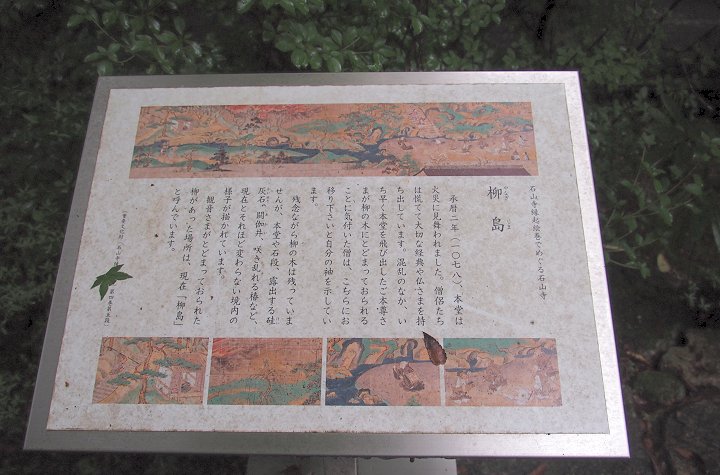 石山寺縁起絵巻でめぐる石山寺
柳島
やなぎ しま
承暦二年(一〇七八)、本堂は
火災に見舞われました。僧侶たち
は慌てて大切な経典や仏さまを持
ち出しています。混乱のなか、い
ち早く本堂を飛び出したご本尊さ
まが柳の木にとどまっておられる
ことに気付いた僧は、こちらにお
移り下さいと自分の袖を示してい
ます。
残念ながら柳の木は残っていま
せんが、本堂や石段、露出する硅
灰石、閼伽井、咲き乱れる椿など、
現在とそれほど変わらない境内の
様子が描かれています。
観音さまがとどまっておられた
柳があった場所は、現在「柳島」
と呼んでいます。
重要文化財
第四巻第五段